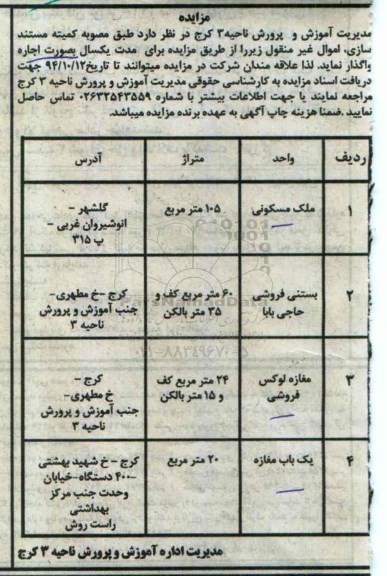 مزایده
مدیریت آموزش و پرورش ناحیه۳ کرج در نظر دارد طبق مصوبه کمیته مستند
سازی، اموال غیر منقول زیررا از طریق مزایده برای مدت یکسال بصورت اجاره
واگذار نماید. لذا علاقه مندان شرکت در مزایده میتوانند تا تاریخ۹۴/۱۰/۱۲ جهت
دریافت اسناد مزایده به کارشناسی حقوقی مدیریت آموزش و پرورش ناحیه ۳ کرج
مراجعه نمایند یا جهت اطلاعات بیشتر با شماره ۰۲۶۳۲۵۴۳۵۵۹ تماس حاصل
نمایید .ضمنا هزینه چاپ آگهی به عهده برنده مزایده میباشد.
ردیف واحد متراژ آدرس
۱ ملک مسکونی ۱۰۵ متر مربع گلشهر –
انوشیروان غربی –
پ ۳۱۵
۲ بستنی فروشی ۶۰ متر مربع کف و کرج -خ مطهری-
حاجی بابا ۳۵ متر بالکن جنب آموزش و پرورش
ناحیه ۳
۳ مغازه لوکس ۲۴ متر مربع کف کرج –
فروشی و ۱۵ متر بالکن خ مطهری-
جنب آموزش و پرورش
ناحیه ۳
۴ یک باب مغازه ۲۰ متر مربع کرج – خ شهید بهشتی
-۴۰۰ دستگاه-خیابان
وحدت جنب مرکز
بهداشتی
راست روش
مدیریت اداره آموزش و پرورش ناحیه ۳ کرج